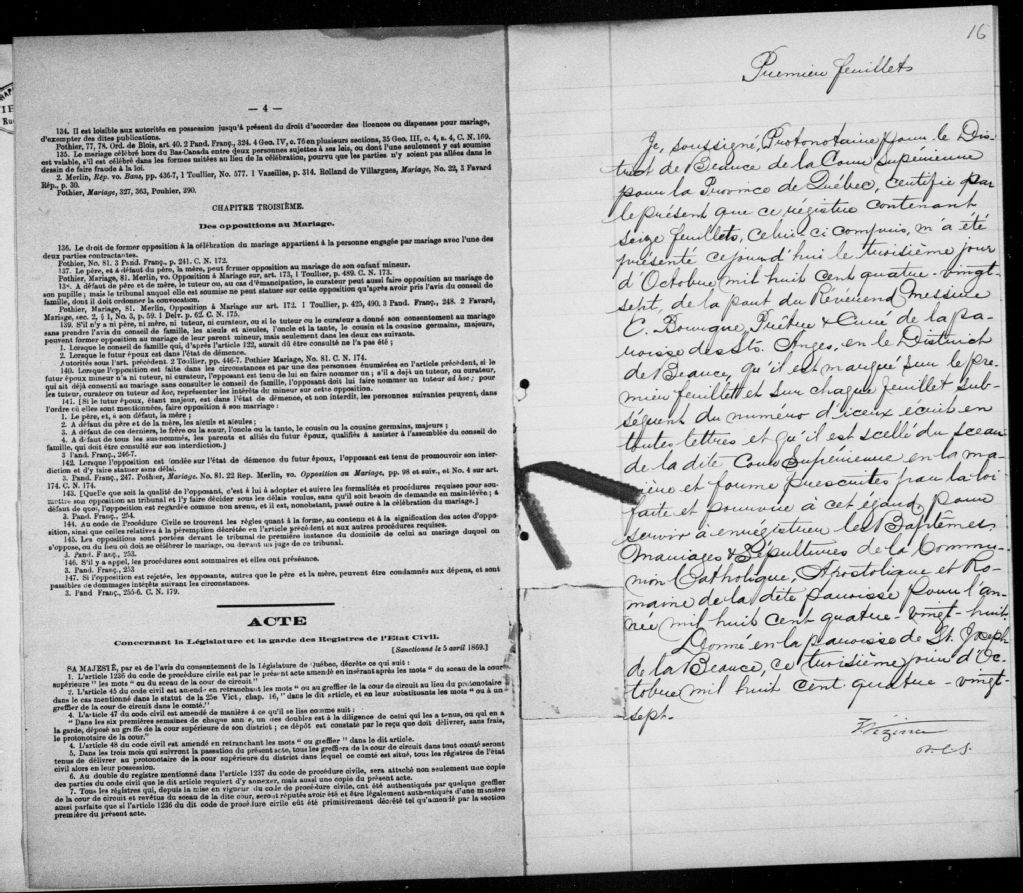 — 4 —
134. Il est loisible aux autorités en possession jusqu'à présent du droit d'accorder des licences ou dispenses pour mariage,
d'exempter des dites publications.
Pothier, 77, 78. Ord. de Blois, art. 40. 2 Pand. Franç., 324. 4 Geo. IV, c. 76 en plusieurs sections, 35 Geo. III, c. 4, s. 4, C. N. 169.
135. Le mariage célébré hors du Bas-Canada entre deux personnes sujettes à ses lois, ou dont l'une seulement y est soumise
est valable, s'il est célébré dans les formes usitées au lieu de la célébration, pourvu que les parties n'y soient pas allées dans le
dessin de faire fraude à la loi.
2. Merlin, Rep. vo. Bans, pp. 436-7, 1 Toullier, No. 577. 1 Vazeilles, p. 314. Rolland de Villargues, Mariage, No. 22, 3 Favard
Rép., p. 30.
Pothier, Mariage, 327, 363, Pouhier, 290.
CHAPITRE TROISIÈME.
Des oppositions au Mariage.
136. Le droit de former opposition à la célébration du mariage appartient à la personne engagée par mariage avec l'une des
deux parties contractantes.
Pothier, No. 81. 3 Pand. Franç., p. 241. C. N. 172.
137. Le père, et à défaut du père, la mère, peut former opposition au mariage de son enfant mineur.
Pothier, Mariage, 81. Merlin, vo. Opposition à Mariage sur art. 173, 1 Toullier, p. 489. C. N. 173.
138. A défaut de père et de mère, le tuteur ou, au cas d'émancipation, le curateur peut aussi faire opposition au mariage de
son pupille; mais le tribunal auquel elle est soumise ne peut statuer sur cette opposition qu'après avoir pris l'avis du conseil de
famille, dont il doit ordonner la convocation.
Pothier, Mariage, 81. Merlin, Opposition à Mariage sur art. 172. 1 Toullier, p. 425, 490. 3 Pand. Franç., 248. 2 Favard,
Mariage, sec. 2, § 1, No. 3, p. 59. 1 Delv. p. 62. C. N. 175.
139. S'il n'y a ni père, ni mère, ni tuteur, ni curateur, ou si le tuteur ou le curateur a donné son consentement au mariage
sans prendre l'avis du conseil de famille, les aïeuls et aïeules, l'oncle et la tante, le cousin et la cousine germains, majeurs,
peuvent former opposition au mariage de leur parent mineur, mais seulement dans les deux cas suivants.
1. Lorsque le conseil de famille qui, d'après l'article 122, aurait dû être consulté ne l'a pas été ;
2. Lorsque le futur époux est dans l'état de démence.
Autorités sous l'art. précédent. 2 Toullier, pp. 446-7. Pothier Mariage, No. 81. C. N. 174.
140. Lorsque l'opposition est faite dans les circonstances et par une des personnes énumérées en l'article précédent, si le
futur époux mineur n'a ni tuteur, ni curateur, l'opposant est tenu de lui en faire nommer un ; s'il a déjà un tuteur, ou curateur,
qui ait déjà consenti au mariage sans consulter le conseil de famille, l'opposant doit lui faire nommer un tuteur ad hoc ; pour
les tuteur, curateur ou tuteur ad hoc, représenter les intérêts du mineur sur cette opposition.
141. [Si le futur époux, étant majeur, est dans l'état de démence, et non interdit, les personnes suivantes peuvent, dans
l'ordre où elles sont mentionnées, faire opposition à son mariage :
1. Le père, et, à son défaut, la mère ;
2. A défaut du père et de la mère, les aïeuls et aïeules ;
3. A défaut de ces derniers, le frère ou la sœur, l'oncle ou la tante, le cousin ou la cousine germains, majeurs ;
4. A défaut de tous les sus-nommés, les parents et alliés du futur époux, qualifiés à assister à l'assemblée du conseil de
famille, qui doit être consulté sur son interdiction.]
3 Pand. Franç., 246-7.
142. Lorsque l'opposition est fondée sur l'état de démence du futur époux, l'opposant est tenu de promouvoir son inter-
diction et d'y faire statuer sans délai.
3. Pand. Franç., 247. Pothier, Mariage. No. 81. 22 Rep. Merlin, vo. Opposition au Mariage, pp. 98 et suiv., et No. 4 sur art.
174. C. N. 174.
143. [Quel que soit la qualité de l'opposant, c'est à lui à adopter et suivre les formalités et procédures requises pour sou-
mettre son opposition au tribunal et l'y faire décider sous les délais voulus, sans qu'il soit besoin de demande en main-lévée ; à
défaut de quoi, l'opposition est regardée comme non avenu, et il est, nonobstant, passé outre à la célébration du mariage.]
3. Pand. Franç., 254.
144. Au code de Procédure Civile se trouvent les règles quant à la forme, au contenu et à la signification des actes d'oppo-
sition, ainsi que celles relatives à la péremption décrétée en l'article précédent et aux autres procédures requises.
145. Les oppositions sont portées devant le tribunal de première instance du domicile de celui au mariage duquel on
s'oppose, ou du lieu où doit se célébrer le mariage, ou devant un juge de ce tribunal.
3. Pand. Franç., 253.
146. S'il y a appel, les procédures sont sommaires et elles ont préséance.
3. Pand. Franç., 253
147. Si l'opposition est rejetée, les opposants, autres que le père et la mère, peuvent être condamnés aux dépens, et sont
passibles de dommages intérêts suivant les circonstances.
3. Pand Franç., 255-6. C. N. 179.
ACTE
Concernant la Législature et la garde des Registres de l'Etat Civil.
[Sanctionné le 5 avril 1869.]
SA MAJESTÉ, par et de l'avis du consentement de la Législature de Québec, décrète ce qui suit :
1. L'article 1236 du code de procédure civile est par le présent acte amendé en insérant après les mots " du sceau de la cour
supérieure " les mots " ou du sceau de la cour de circuit "
2. L'article 45 du code civil est amendé en retranchant les mots " ou au greffier de la cour de circuit au lieu du protonotaire
dans le cas mentionné dans le statut de la 25e Vict., chap. 16, " dans le dit article, et en leur substituant les mots " ou à un
greffier de la cour de circuit dans le comté."
4. L'article 47 du code civil est amendé de manière à ce qu'il se lise comme suit :
" Dans les six premières semaines de chaque année, un des doubles est à la diligence de celui qui les a tenus, ou qui en a
la garde, déposé au greffe de la cour supérieure de son district ; ce dépôt est constaté par le reçu que doit délivrer, sans frais,
le protonotaire de la cour."
4. L'article 48 du code civil est amendé en retranchant les mots " ou greffier " dans le dit article.
5. Dans les trois mois qui suivront la passation du présent acte, tous les greffiers de la cour de circuit dans tout comté seront
tenus de délivrer au protonotaire de la cour supérieure du district dans lequel ce comté est situé, tous les régistres de l'état
civil alors en leur possession.
6. Au double du registre mentionné dans l'article 1237 du code de procédure civile, sera attaché non seulement une copie
des parties du code civil que le dit article requiert d'y annexer, mais aussi une copie du présent acte.
7. Tous les régistres qui, depuis la mise en vigueur du code de procédure civile, ont été authentiqués par quelque greffier
de la cour de circuit et revêtus du sceau de la dite cour, seront réputés avoir été et être légalement authentiqués d'une manière
aussi parfaite que si l'article 1236 du dit code de procédure civile eût été primitivement décrété tel qu'amendé par la section
première du présent acte.
16
Premier feuillets
Je, soussigné, Protonotaire pour le Dis-
trict de Beauce de la Cour Supérieure
pour la Province de Québec, certifie par
le présent que ce régistre contenant
seize feuillets, celui-ci compris, m'a été
présenté cejourd'hui le troisième jour
d'Octobre mil huit cent quatre-vingt-
sept, de la part du Révérend Messire
C. Bourque, Prêtre & Curé de la pa-
roisse des Sts. Anges, en le District
de Beauce, qu'il est marqué sur le pre-
mier feuillet et sur chaque feuillet sub-
séquent du numéro d'iceux écrit en
toutes lettres et qu'il est scellé du sceau
de la dite Cour Supérieure en la ma-
nière et forme prescrites par la loi
faite et pourvue à cet égard, pour
servir à enrégistrer les Baptêmes
Mariages & Sépultures de la Commu-
nion Catholique, Apostolique et Ro-
maine de la dite paroisse pour l'an-
née mil huit cent quatre-vingt-huit
Donné en la paroisse de St. Joseph
de la Beauce, ce troisième jour d'Oc-
tobre mil huit cent quatre-vingt-
sept.
Vézina
P.C.S.